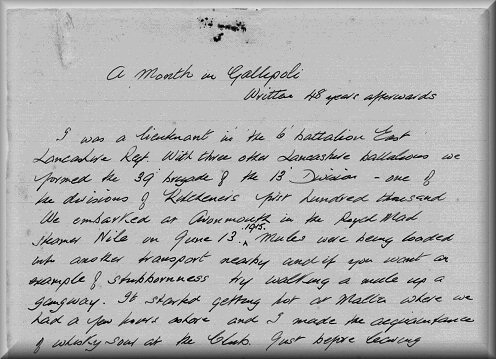 A Month in Gallipoli
Written 48 years afterwards
I was a lieutenant in the 6 battalion East
Lancashire Regt. With three other Lancashire battalions we
formed the 39 brigade of the 13 Division - one of
the divisions of Kitchener's first hundred thousand
We embarked at Avonmouth in the Royal Mail
steamer Nile on June 13. 1915. Mules were being loaded
into another transport nearby and if you want an
example of stubbornness try walking a mule up a
gangway. It started getting hot at Malta where we
had a few hours ashore and I made the acquaintance
of whisky sour at the Club. Just before leaving